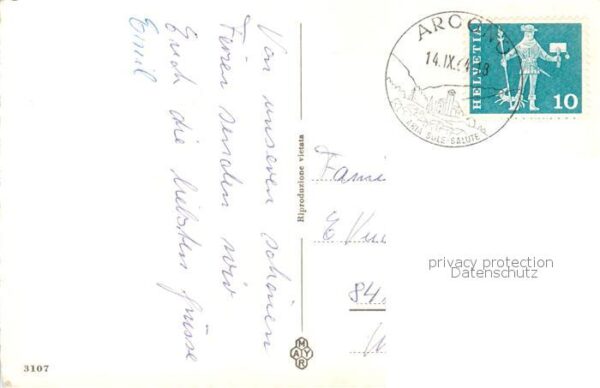 Von unseren schönen
Ferien senden wir
Euch die liebsten Grüsse
Emil
Riproduzione vietata
MAYR
3107
ARCEGNO
14.IX.64-18
ARIA SOLE SALUTE
HELVETIA
10
Fami
E. Ku
84
privacy protection
Datenschutz